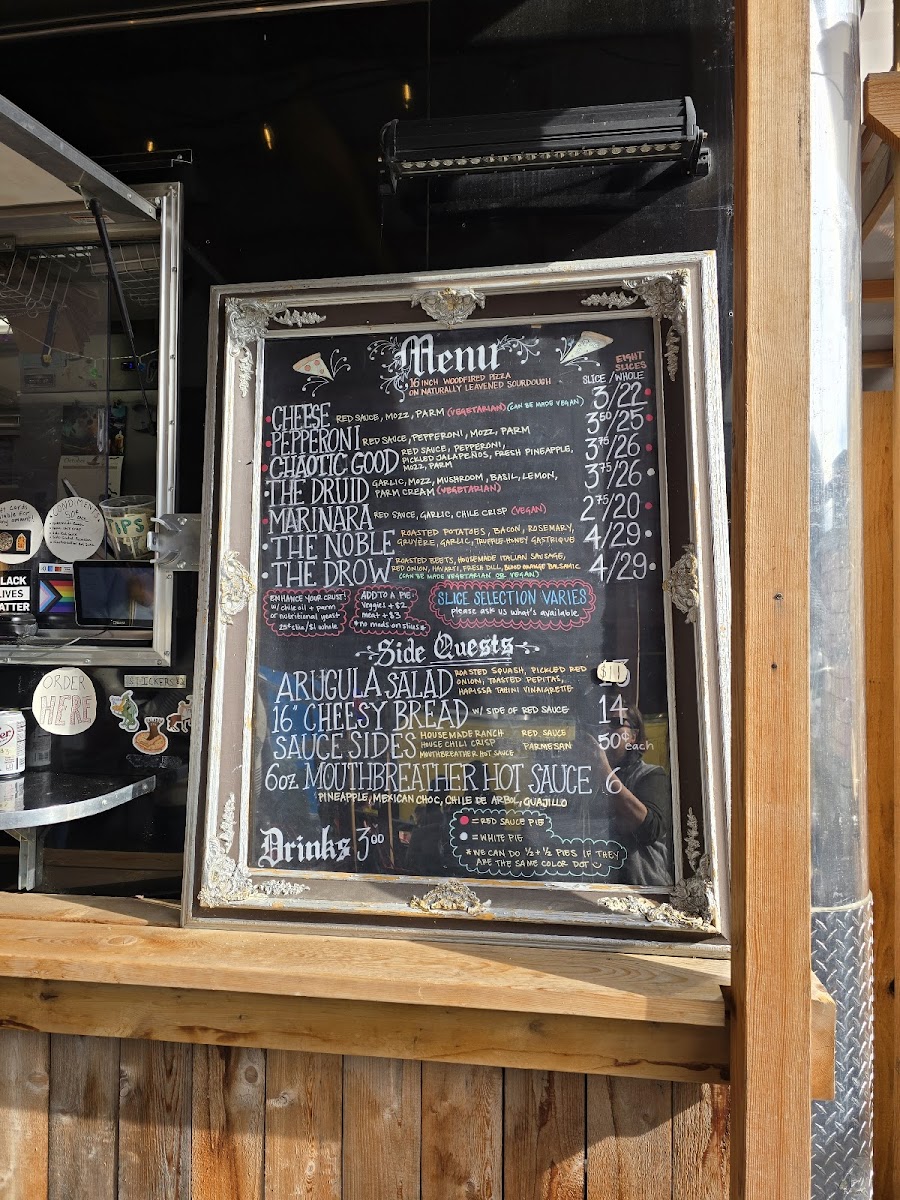 Menu
16 INCH WOODFIRED PIZZA
ON NATURALLY LEAVENED SOURDOUGH
EIGHT
SLICES
SLICE / WHOLE
CHEESE RED SAUCE, MOZZ, PARM (VEGETARIAN) (CAN BE MADE VEGAN) 3/22
PEPPERONI RED SAUCE, PEPPERONI, MOZZ, PARM 3⁵⁰/25
CHAOTIC GOOD RED SAUCE, PEPPERONI, 3⁷⁵/26
PICKLED JALAPEÑOS, FRESH PINEAPPLE,
MOZZ, PARM
THE DRUID GARLIC, MOZZ, MUSHROOM, BASIL, LEMON, 3⁷⁵/26
PARM CREAM (VEGETARIAN)
MARINARA RED SAUCE, GARLIC, CHILE CRISP (VEGAN) 2⁷⁵/20
THE NOBLE ROASTED POTATOES, BACON, ROSEMARY, 4/29
GRUYÈRE, GARLIC, TRUFFLE-HONEY GASTRIQUE
THE DROW ROASTED BEETS, HOUSEMADE ITALIAN SAUSAGE, 4/29
RED ONION, HAVARTI, FRESH DILL, BLOOD ORANGE BALSAMIC
(CAN BE MADE VEGETARIAN OR VEGAN)
ENHANCE YOUR CRUST!
w/ chile oil + parm
or nutritional yeast
25¢ slice/$1 whole
ADD TO A PIE
veggies +$2
meat +$3
*no mods on slices*
SLICE SELECTION VARIES
please ask us what's available
Side Quests
ARUGULA SALAD ROASTED SQUASH, PICKLED RED $11
ONION, TOASTED PEPITAS,
HARISSA TAHINI VINAIGRETTE
16" CHEESY BREAD W/ SIDE OF RED SAUCE 14
SAUCE SIDES HOUSEMADE RANCH RED SAUCE 50¢ each
HOUSE CHILI CRISP PARMESAN
MOUTHBREATHER HOT SAUCE
6oz MOUTHBREATHER HOT SAUCE 6
PINEAPPLE, MEXICAN CHOC, CHILE DE ARBOL, GUAJILLO
Drinks 3⁰⁰
= RED SAUCE PIE
= WHITE PIE
*WE CAN DO ½ + ½ PIES IF THEY
ARE THE SAME COLOR DOT
CONDIMENTS
TIPS
BLACK
LIVES
MATTER
ORDER
HERE
STICKERS